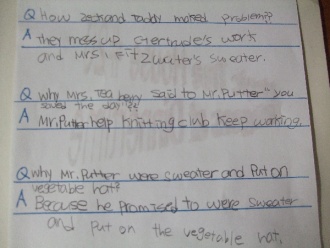 Q How Zeke and Taddy mated problem??
A They mess up Gertrude's work
and Mrs. Fitzwater's sweater.
Q why Mrs. Teaberry said to Mr. Putter "you
saved the day"?
A Mr. Putter help knitting club keep working.
Q why Mr. Putter were sweater and put on
vegetable hat?
A Because he promised to were sweater
and put on the vegetable hat.